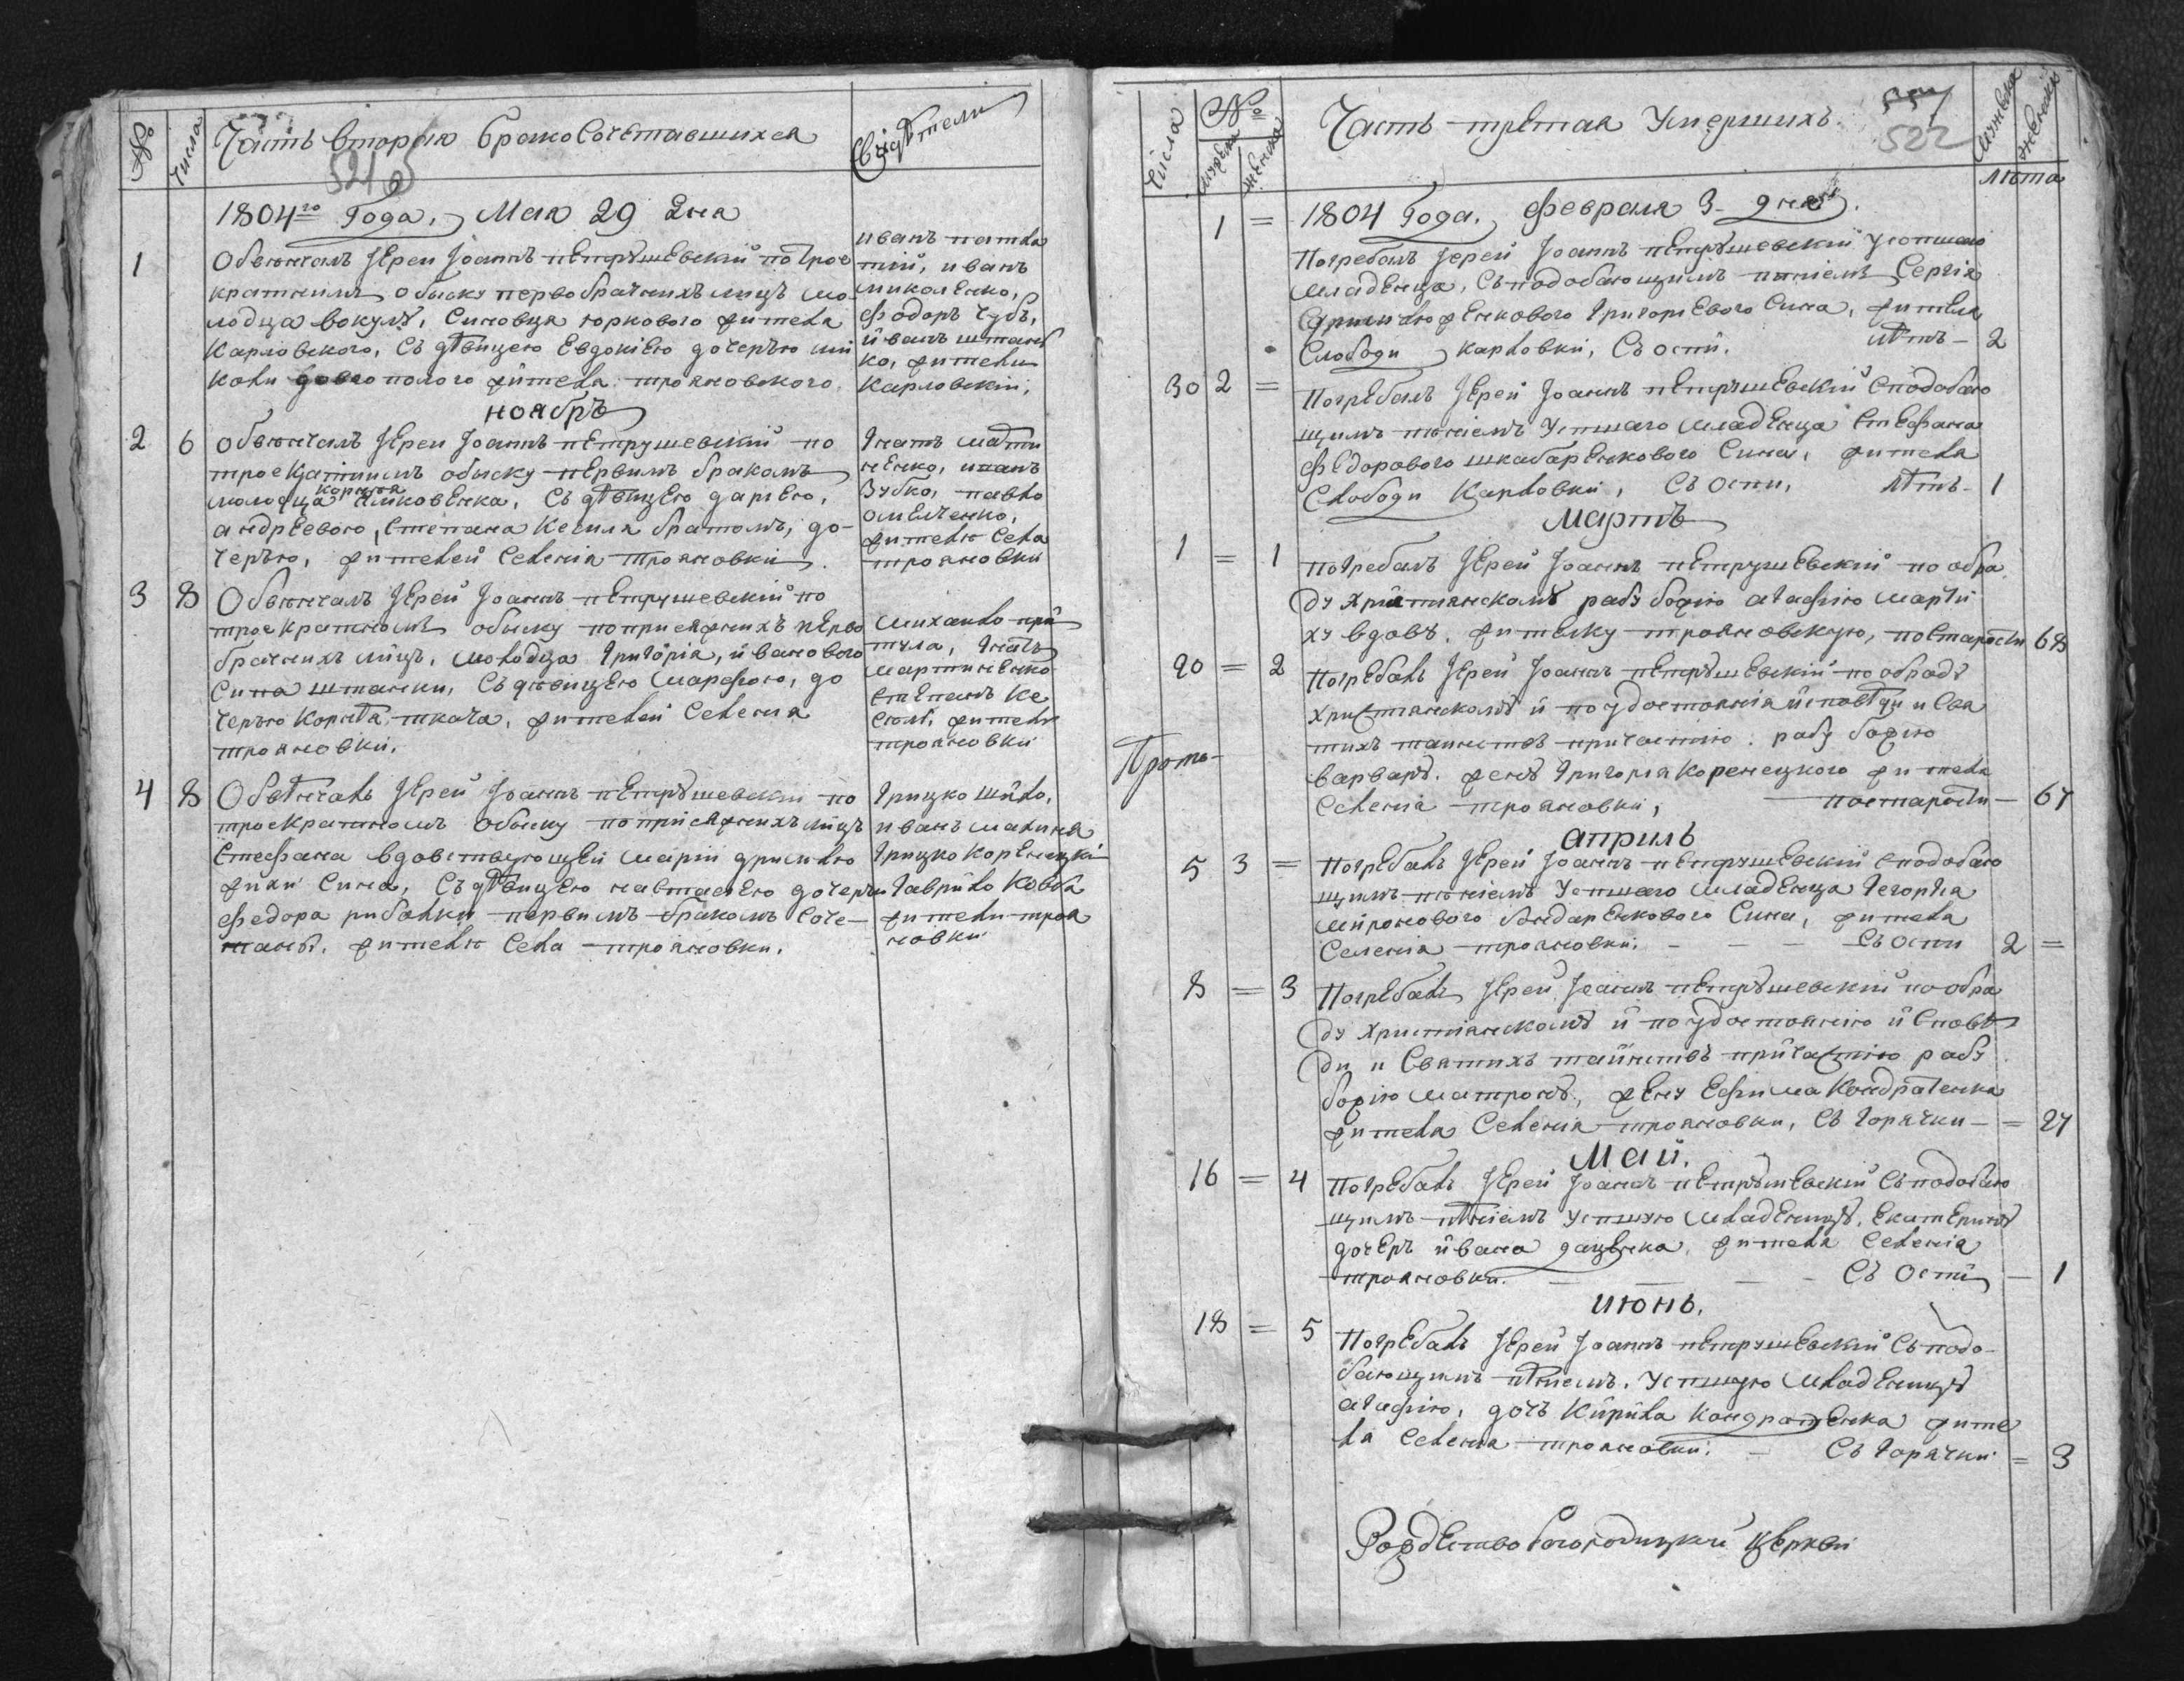 №
Числа
Часть Вторая Бракосочетавшихся
Свидѣтели
521
1804го Года, Мая 29 дня
1
Обвѣнчалъ Іерей Іоаннъ пЕтрушЕвскій по трое
кратнимъ обыску первобрачнихъ лицъ мо
лодца вокулу, Синовца юркового жителя
Карловского, Съ дѣвицею Евдокіею дочерью
жителя трояновского
иванъ
иванъ
миколЕнко,
федоръ чубъ,
иванъ
ко, жители
карловскій,
ноябрь
2 6
Обвѣнчалъ Іерей Іоаннъ пЕтрушевскій по
троекратнимъ обыску пЕрвимъ бракомъ
молодца Съ дѣвицЕю даріЕю,
андрЕевого, Степана братомъ, до-
черью, жителей Селенія трояновки.
Игнатъ
иванъ
Зубко, павло
омелченко,
жители Села
трояновки
3 8
Обвѣнчалъ Іерей Іоаннъ пЕтрушевскій по
троекратномъ обыску по присяжнихъ пЕрво
брачнихъ лицъ, молодца Григорія, иванового
Сина штанки, Съ дѣвицЕю марфою, до
черью Корнѣя ткача, жителей Селенія
трояновки.
михайло при
тула, Игнатъ
мартиненко
стЕпанъ Ке
жители
трояновки
4 8
Обвѣнчалъ Іерей Іоаннъ пЕтрушевскій по
троекратномъ обыску по присяжнихъ лицъ
Стефана вдовствующей маріи
Сина, Съ дѣвицЕю настасіЕю дочерью
федора рибалки первимъ бракомъ Соче-
таны, жители Села трояновки.
Грицко шило,
иванъ малина
Грицко КорЕнецкій
Гаврило Ковба
жители троя
новки
Числа
№
мужеска
женска
Часть третая Умершихъ.
557
522
мужеска
женска
лѣта
1 =
1804 Года, февраля 3- дня.
Погребалъ Іерей Іоаннъ пЕтрушевскій усопшаго
младЕнца, Съ подобающимъ пѣніемъ Сергія
ГригоріЕвого Сина, жителя
Слободи Карловки, Съ оспи. лѣтъ - 2
30 2 =
ПогрЕбалъ Іерей Іоаннъ пЕтрушЕвскій Сподобаю
щимъ пѣніемъ Успшаго младЕнца СтЕфана
фЕдорового шкабарЕнкового Сина, жителя
Слободи Карловки, Съ оспи, лѣтъ - 1
Мартъ
1 = 1
погребалъ Іерей Іоаннъ пЕтрушЕвскій по обра
ду христіянскому рабу божію агафію
вдову, жителку трояновскую, по старости 68
20 = 2
ПогрЕбалъ Іерей Іоаннъ пЕтрушЕвскій по обраду
христіянскому и по удостоянія исповѣди и Свя
тихъ таинствъ причастію рабу божію
варвару, жену Григорія Коренецкого жителя
Селенія трояновки, по старости — 67
апрель
5 3 =
ПогрЕбалъ Іерей Іоаннъ пЕтрушЕвскій сподобаю
щимъ пѣніемъ Успшаго младЕнца
миронового бондарЕнкового Сина, жителя
Селенія трояновки. — — — Съ оспи 2 =
8 = 3
ПогрЕбалъ Іерей Іоаннъ пЕтрушевскій по обра
ду христіянскому и по удостоянію и Спове
ди и Святихъ таинствъ причастію рабу
божію матрону, жЕну Ефима Кондратенка
жителя Селенія трояновки, Съ горячки — = 27
Май.
16 = 4
ПогрЕбалъ Іерей Іоаннъ пЕтрушЕвскій Съ подобаю
щимъ пѣніемъ Успшую младЕнцу, ЕкатЕрину
дочЕрь ивана дацЕнка, жителя Селенія
трояновки. — — — Съ оспи — 1
июнь.
18 = 5
ПогрЕбалъ Іерей Іоаннъ пЕтрушЕвскій Съ подо-
бающимъ пѣніемъ, Успшую младЕнцу
агафію, дочь Кирила КондратЕнка жите
ля Селенія трояновки. — Съ горячки = 3
РождЕство Богородицкой цЕркви